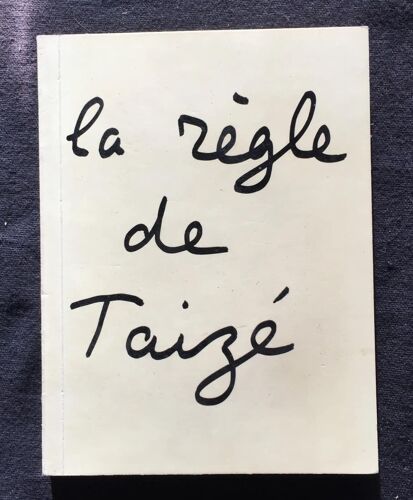 la règle
de
Taizé